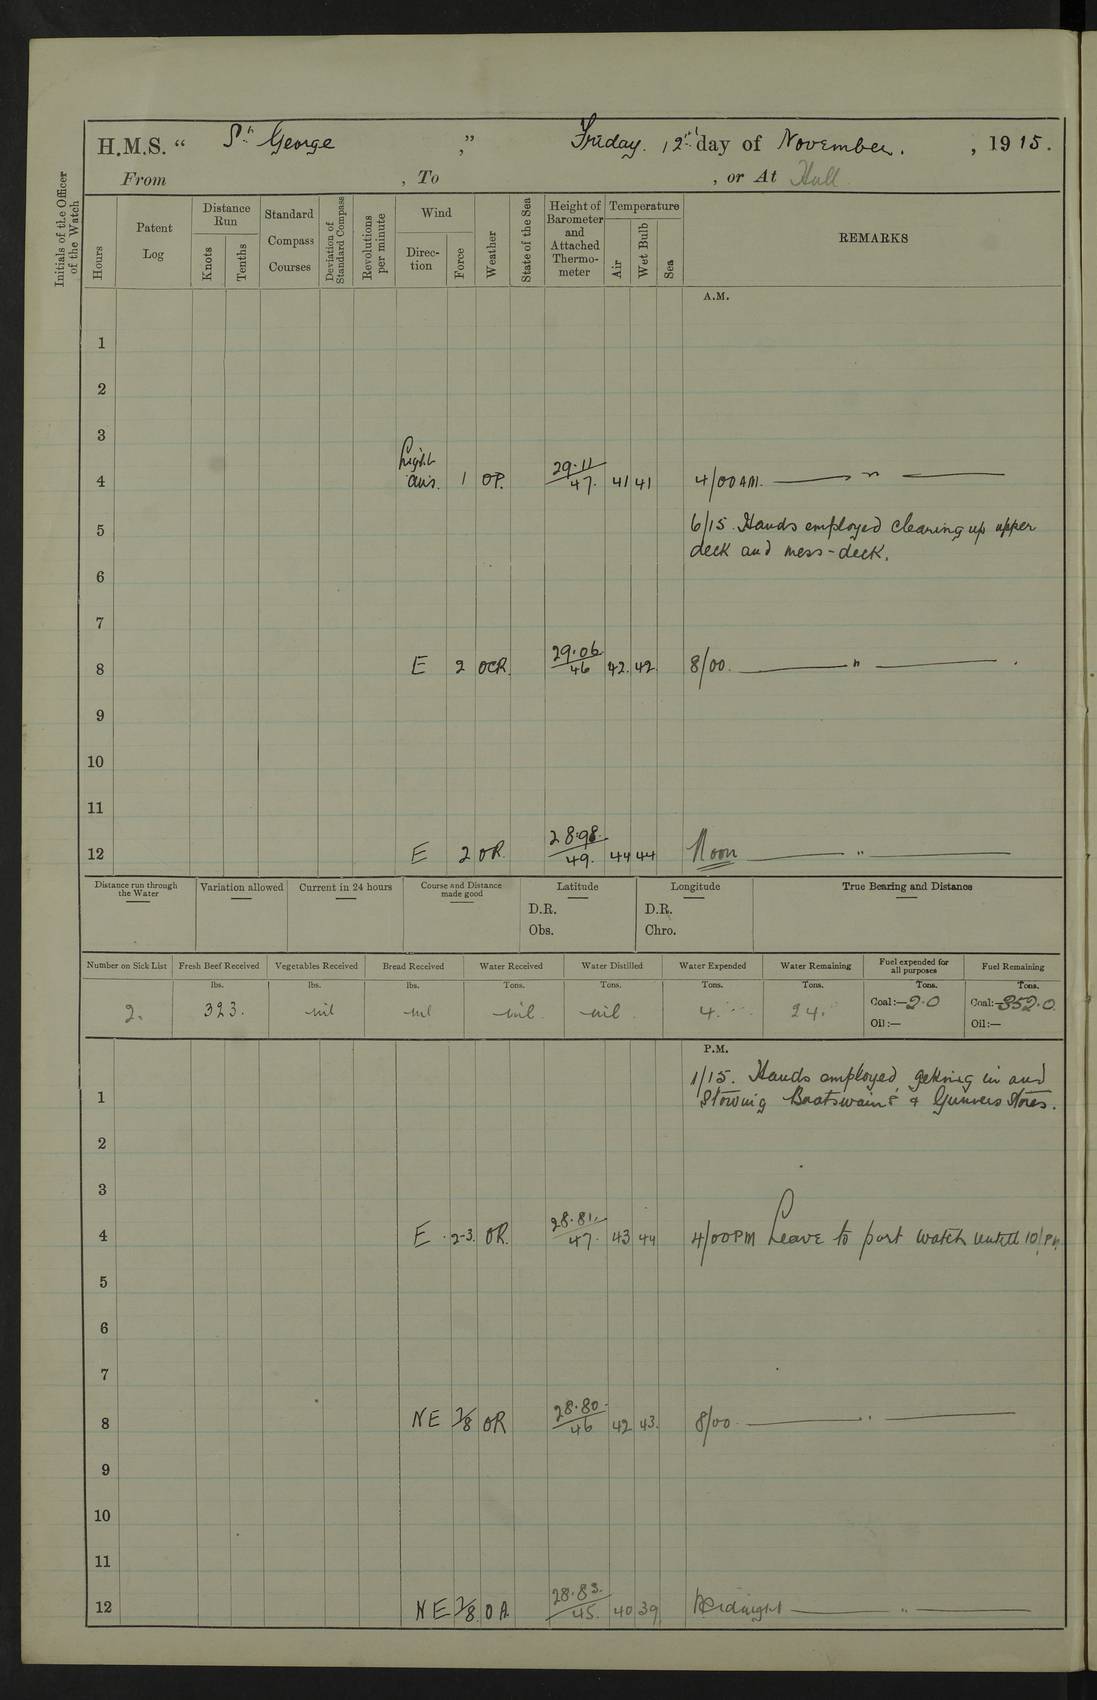 H.M.S. “ St. George ,” Friday. 12th day of November. , 1915.
From , To , or At Hull
Initials of the Officer of the Watch
Hours
Patent Log
Distance Run
Knots
Tenths
Standard Compass Courses
Deviation of Standard Compass
Revolutions per minute
Wind
Direction
Force
Weather
State of the Sea
Height of Barometer and Attached Thermometer
Temperature
Air
Wet Bulb
Sea
REMARKS
A.M.
1
2
3
4 Light airs. 1 OP. 29.11/47. 41 41 4/00 AM. ——— " ———
5 6/15. Hands employed clearing up upper
deck and mess-deck.
6
7
8 E 2 OCR. 29.06/46 42. 42 8/00. ——— " ——— .
9
10
11
12 E 2 OR. 28.98/49. 44 44 Noon ——— " ———
Distance run through the Water
Variation allowed
Current in 24 hours
Course and Distance made good
Latitude
D.R.
Obs.
Longitude
D.R.
Chro.
True Bearing and Distance
Number on Sick List
Fresh Beef Received
Vegetables Received
Bread Received
Water Received
Water Distilled
Water Expended
Water Remaining
Fuel expended for all purposes
Fuel Remaining
lbs. lbs. lbs. Tons. Tons. Tons. Tons. Tons. Tons.
2. 323. nil nil nil nil 4. 24. Coal:—2.0 Coal:—852.0
Oil:— Oil:—
P.M.
1/15. Hands employed getting in and
1 Stowing Boatswains & Gunners Stores.
2
3
4 E 2-3. OR. 28.81./47. 43 44 4/00 PM Leave to port watch untill 10/PM
5
6
7
8 NE 7/8 OR 28.80./46 42 43. 8/00. ——— " ———
9
10
11
12 NE 7/8. OR 28.83./45. 40 39 Midnight ——— " ———